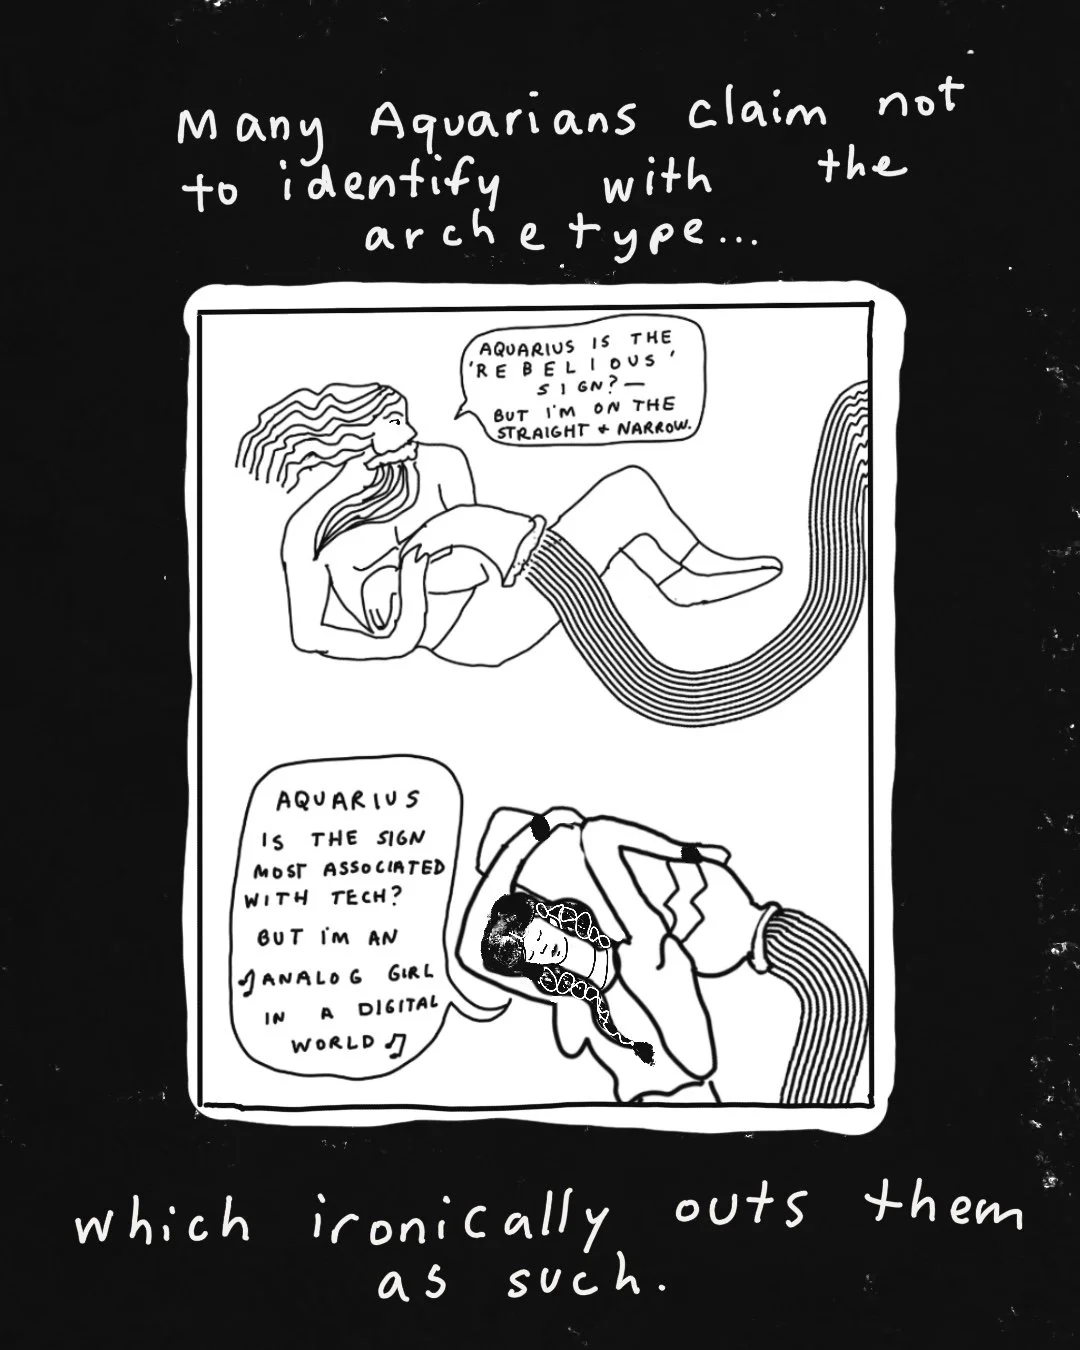 Many Aquarians claim not
to identify with the
archetype...
AQUARIUS IS THE
'REBELIOUS'
SIGN? —
BUT I'M ON THE
STRAIGHT + NARROW.
AQUARIUS
IS THE SIGN
MOST ASSOCIATED
WITH TECH?
BUT I'M AN
♪ANALOG GIRL
IN A DIGITAL
WORLD♫
which ironically outs them
as such.